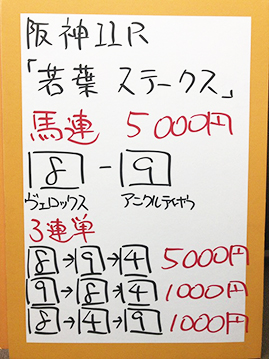 阪神11R
「若葉ステークス」
馬連 5000円
8-9
ヴェロックス アニクルティザウ
3連単
8→9→4 5000円
9→8→4 1000円
8→4→9 1000円